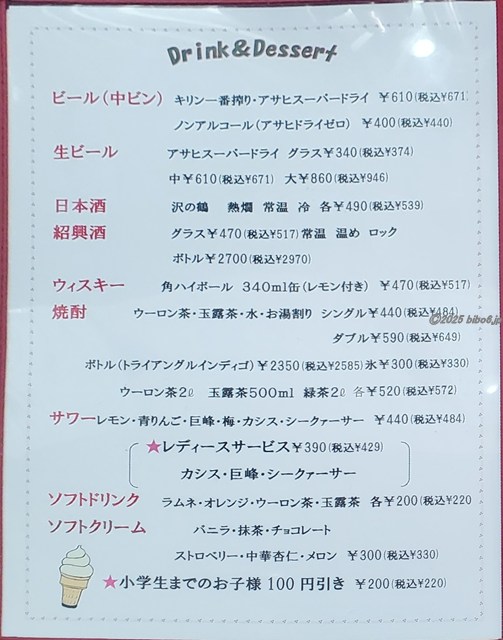 Drink&Dessert
ビール(中ビン) キリン一番搾り・アサヒスーパードライ ￥610(税込¥671
ノンアルコール(アサヒドライゼロ) ￥400(税込¥440)
生ビール アサヒスーパードライ グラス￥340(税込¥374)
中￥610(税込¥671) 大￥860(税込¥946)
日本酒 沢の鶴 熱燗 常温 冷 各￥490(税込¥539)
紹興酒 グラス￥470(税込¥517)常温 温め ロック
ボトル￥2700(税込¥2970)
ウィスキー 角ハイボール 340ml缶(レモン付き) ￥470(税込¥517)
焼酎 ウーロン茶・玉露茶・水・お湯割り シングル￥440(税込¥484)
©2025 bibo6.jp
ダブル￥590(税込¥649)
ボトル(トライアングルインディゴ)￥2350(税込¥2585)氷￥300(税込¥330)
ウーロン茶2ℓ 玉露茶500ml 緑茶2ℓ 各￥520(税込¥572)
サワーレモン・青りんご・巨峰・梅・カシス・シークァーサー ￥440(税込¥484)
★レディースサービス￥390(税込¥429)
カシス・巨峰・シークァーサー
ソフトドリンク ラムネ・オレンジ・ウーロン茶・玉露茶 各￥200(税込¥220
ソフトクリーム バニラ・抹茶・チョコレート
ストロベリー・中華杏仁・メロン ￥300(税込¥330)
★小学生までのお子様100円引き ￥200(税込¥220)